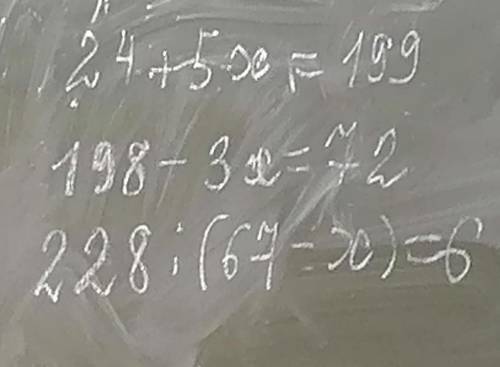 24+5x=199
198-3x=72
228:(67-x)=6